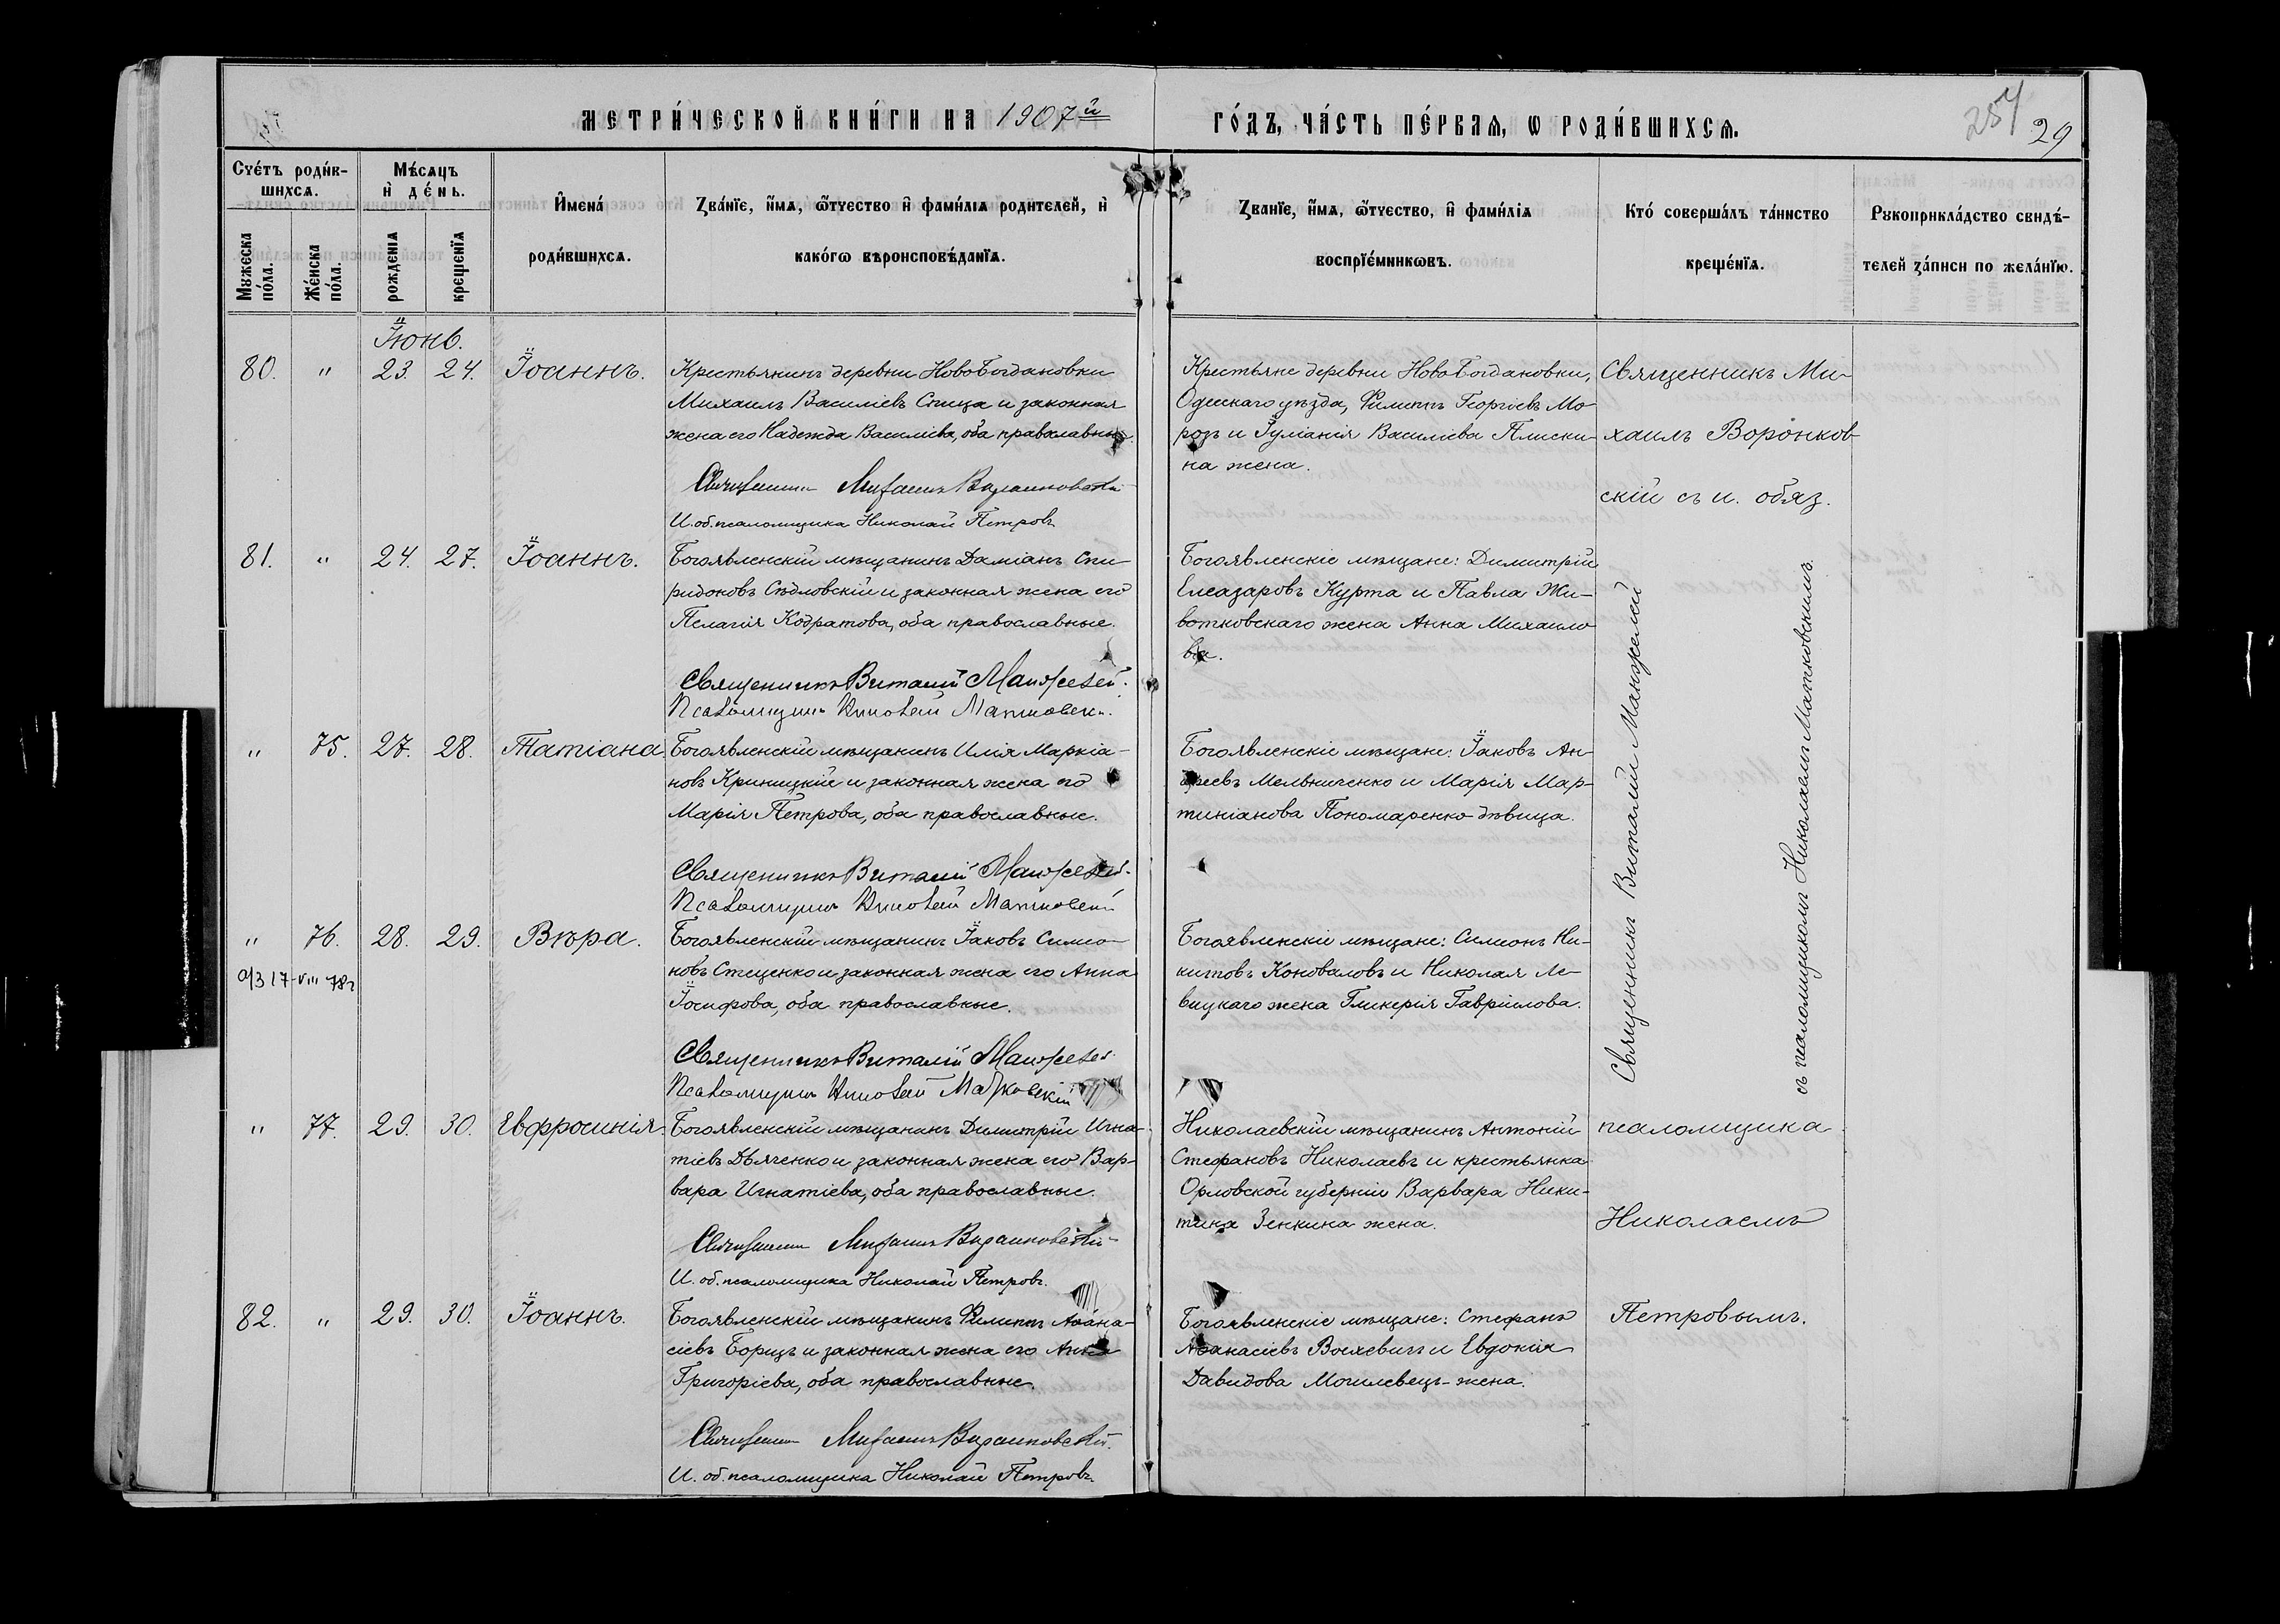 МЕТРИ́ЧЕСКОЙ КНИ́ГИ НА 1907й
ГО́ДЪ, ЧА́СТЬ ПЕ́РВАЯ, Ѡ РОДИ́ВШИХСЯ.
257
29
Сче́тъ роди́в-
шихся.
Мѣ́сяцъ
и҆ де́нь.
Мужеска
по́ла.
Же́нска
по́ла.
рожденія
крещенїя
И҆мена́
роди́вшихся.
Зва́нїе, и҆́мя, ѻ҆́тчество и҆ фами́лія родителей, и҆
како́гѡ вѣроисповѣ́данїя.
Званїе, и҆́мя, ѻ҆́тчество, и҆ фами́лія
воспрїе́мникѡвъ.
Кто́ соверша́лъ та́инство
креще́нїя.
Рукоприкла́дство свидѣ́-
телей за́писи по жела́нїю.
Іюнь.
80. " 23. 24. Іоаннъ.
Крестьянинъ деревни НовоБогдановки
Михаилъ Василіевъ Спица и законная
жена его Надежда Василіева, оба православные.
Священникъ Михаилъ Воронковскій
И. об. псаломщика Николай Петровъ
Крестьяне деревни НовоБогдановки,
Одесскаго уѣзда, Филиппъ Георгіевъ Мо-
розъ и Іуліанія Василіева Плиски-
на жена.
Священникъ Ми-
хаилъ Воронков-
скій съ и. обяз.
81. " 24. 27. Іоаннъ.
Богоявленскій мѣщанинъ Даміанъ Спи-
ридоновъ Сѣдловскій и законная жена его
Пелагія Кодратова, оба православные.
Священникъ Виталій Манжелей.
Псаломщикъ Николай Матковскій.
Богоявленскіе мѣщане: Димитрій
Елеазаровъ Курта и Павла Жи-
вотковскаго жена Анна Михаило-
ва.
Священникъ Виталій Манжелей
съ псаломщикомъ Николаемъ Матковскимъ.
" 75. 27. 28. Татіана.
Богоявленскій мѣщанинъ Илія Маркіа-
новъ Криницкій и законная жена его
Марія Петрова, оба православные.
Священникъ Виталій Манжелей.
Псаломщикъ Николай Матковскій
Богоявленскіе мѣщане: Іаковъ Ан-
дреевъ Мельниченко и Марія Мар-
тиніанова Пономаренко-дѣвица.
" 76. 28. 29. Вѣра.
17-VIII 78г
Богоявленскій мѣщанинъ Іаковъ Симео-
новъ Стеценко и законная жена его Анна
Іосифова, оба православные.
Священникъ Виталій Манжелей
Псаломщикъ Николай Матковскій
Богоявленскіе мѣщане: Симеонъ Ни-
китовъ Коноваловъ и Николая Ле-
вицкаго жена Гликерія Гавріилова.
" 77. 29. 30. Евфросинія.
Богоявленскій мѣщанинъ Димитрій Игна-
тіевъ Дьяченко и законная жена его Вар-
вара Игнатіева, оба православные.
Священникъ Михаилъ Воронковскій
И. об. псаломщика Николай Петровъ.
Николаевскій мѣщанинъ Антоній
Стефановъ Николаевъ и крестьянка
Орловской губерніи Варвара Ники-
тина Зенкина жена.
псаломщика
Николаемъ
82. " 29. 30. Іоаннъ.
Богоявленскій мѣщанинъ Филиппъ Аѳана-
сіевъ Борщъ и законная жена его Анна
Григоріева, оба православные.
Священникъ Михаилъ Воронковскій.
И. об. псаломщика Николай Петровъ
Богоявленскіе мѣщане: Стефанъ
Аѳанасіевъ и Евдокія
Давидова Могилевецъ-жена.
Петровымъ.